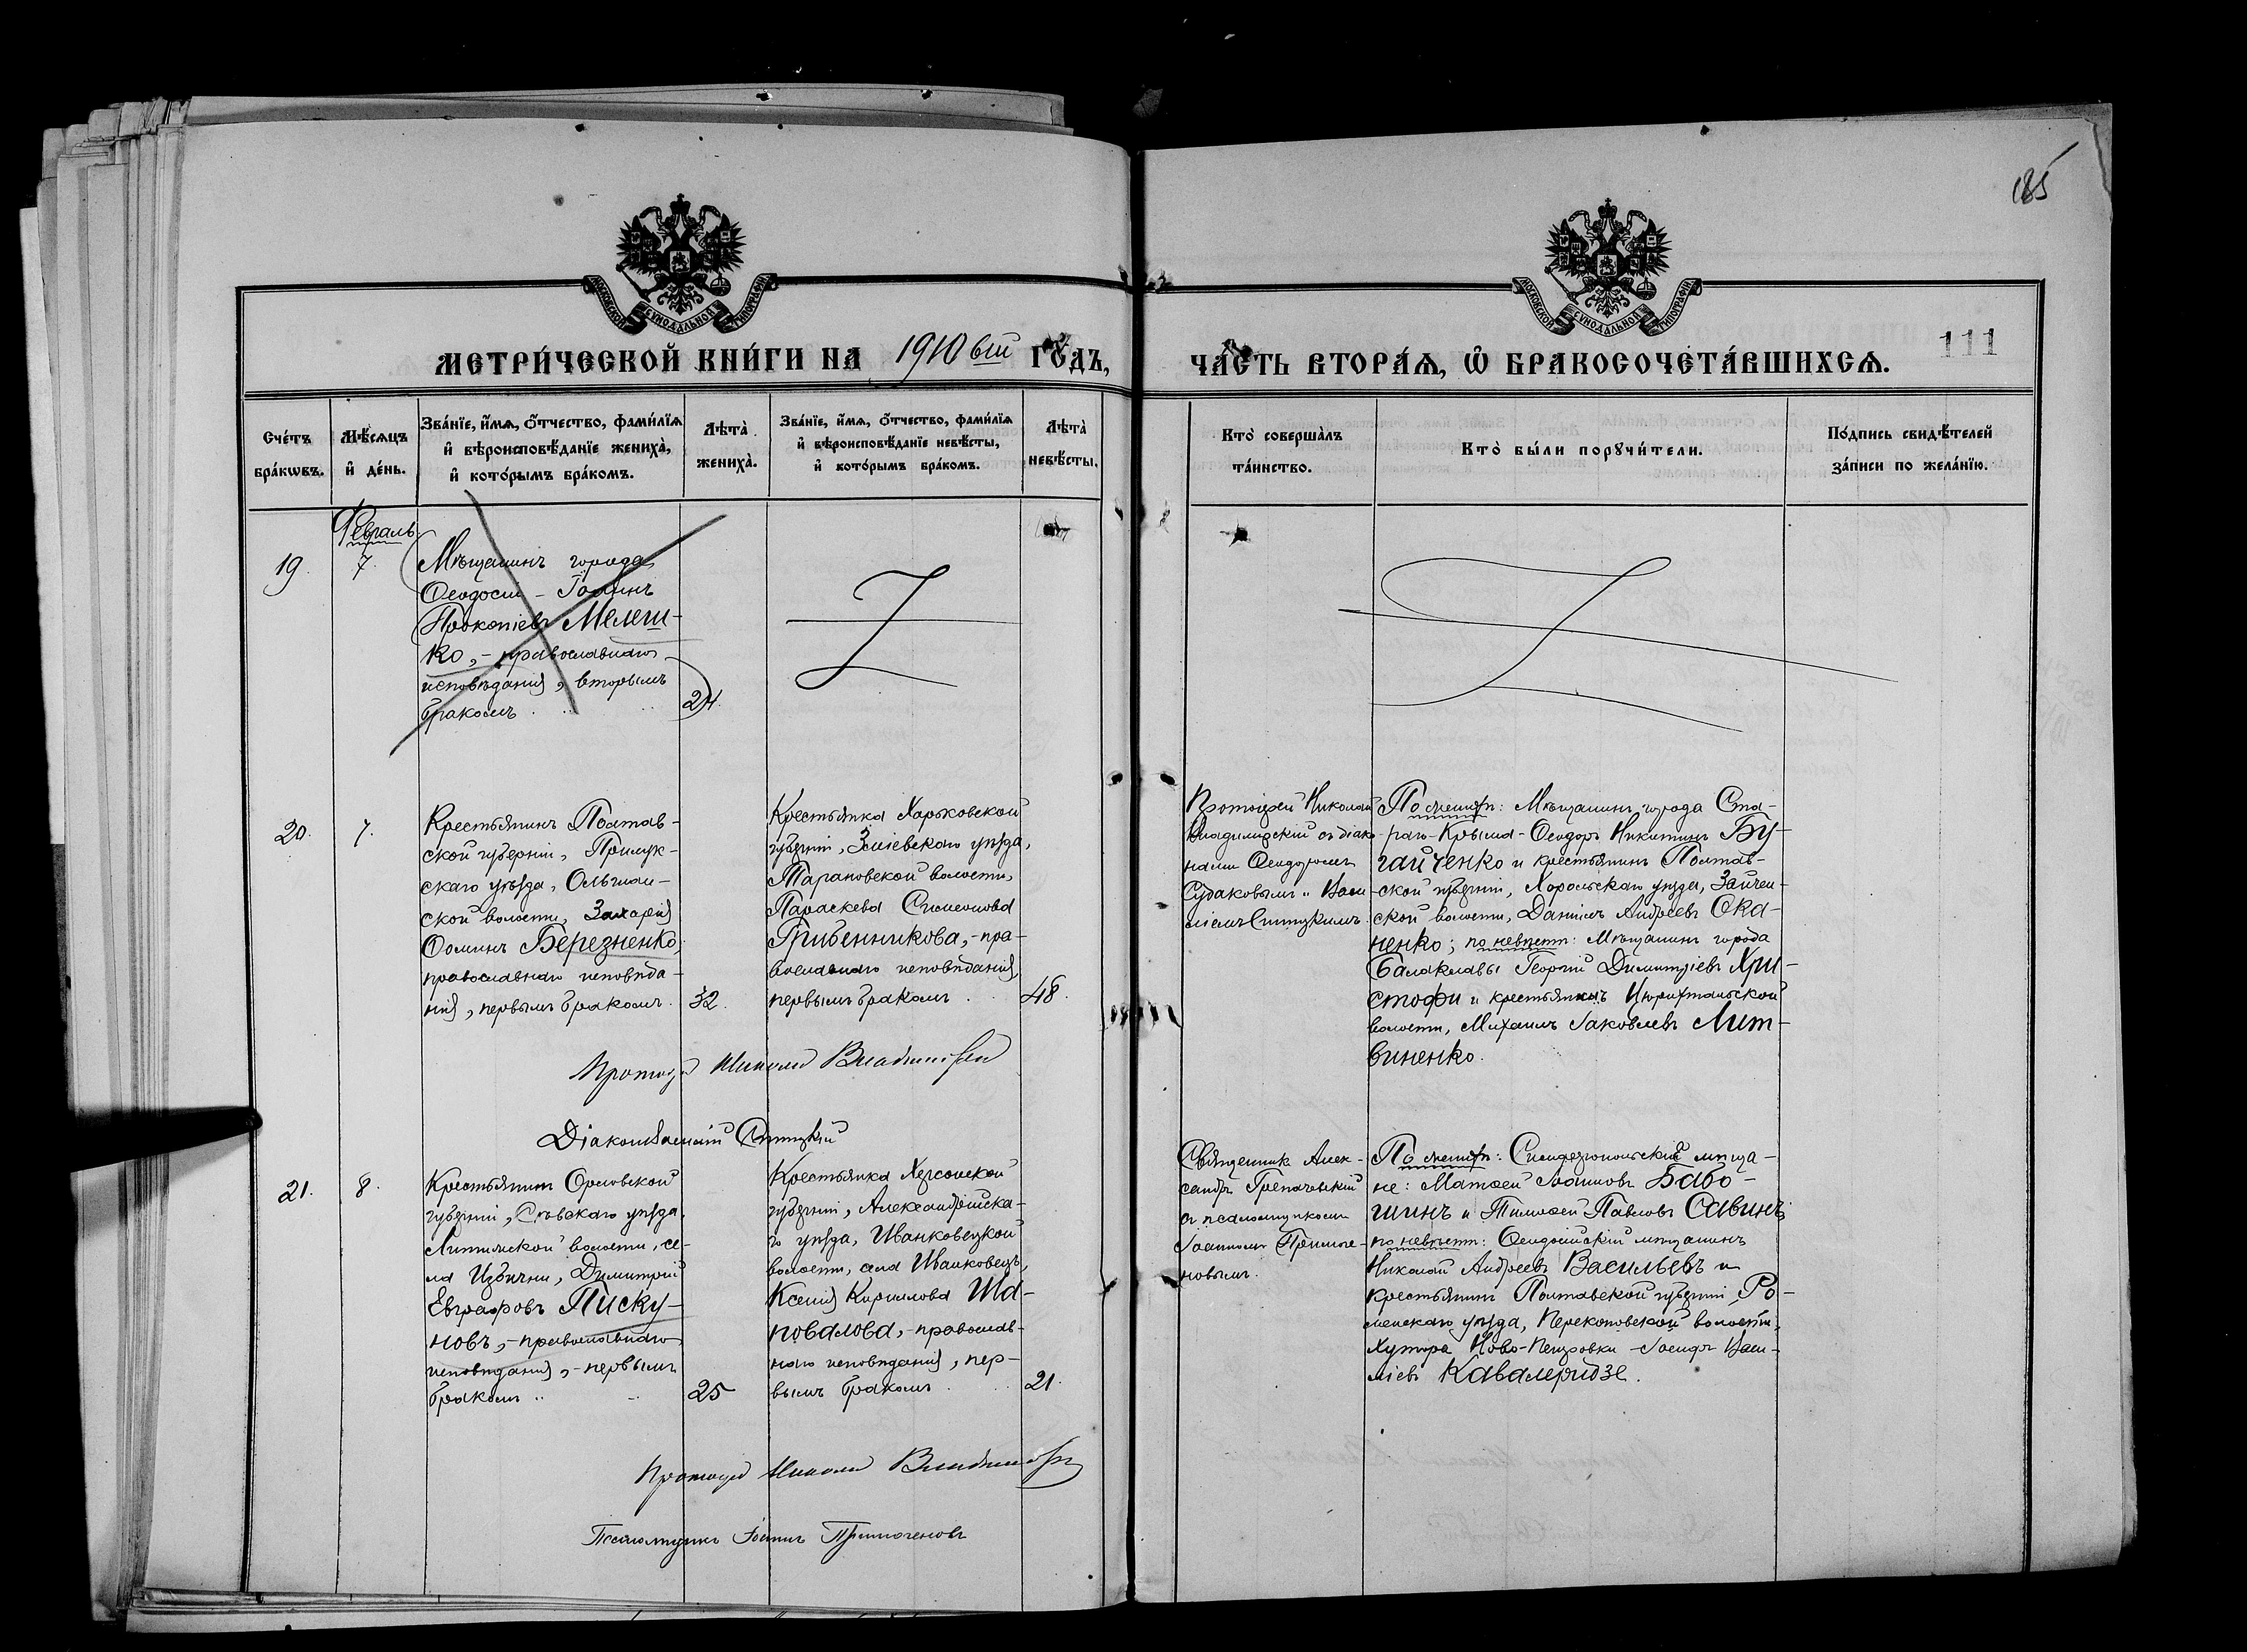 185
МОСКОВСКОЙ СѴНОДАЛЬНОЙ ТИПОГРАФІИ
МОСКОВСКОЙ СѴНОДАЛЬНОЙ ТИПОГРАФІИ
МЕТРИ́ЧЕСКОЙ КНИ́ГИ НА 1910вый ГО́ДЪ,
ЧА́СТЬ ВТОРА́Я, Ѡ БРАКОСОЧЕТА́ВШИХСЯ.
111
Сче́тъ
бра́кωвъ.
Мѣ́сяцъ
и҆ де́нь.
Зва́нїе, и҆́мя, о҆́тчество, фами́лїя
и҆ вѣроисповѣ́данїе жениха̀,
и҆ кото́рымъ бра́комъ.
Лѣта̀
жениха̀.
Зва́нїе, и҆́мя, о҆́тчество, фами́лїя
и҆ вѣроисповѣ́данїе невѣ́сты,
и҆ кото́рымъ бра́комъ.
Лѣта̀
невѣ́сты.
Кто̀ соверша́лъ
та́инство.
Кто̀ бы́ли порꙋчи́тели.
По́дпись свидѣ́телей
за́писи по жела́нїю.
Февраль
19.
7.
Мѣщанинъ города
Ѳеодосіи - Іоаннъ
Прокопіевъ Мелеш-
ко, - православнаго
исповѣданія, вторымъ
бракомъ
24.
20.
7.
Крестьянинъ Полтав-
ской губерніи, Прилук-
скаго уѣзда, Ольшан-
ской волости, Захарій
Ѳоминъ Березненко,
православнаго исповѣда-
нія, первымъ бракомъ.
32.
Крестьянка Харьковской
губерніи, Зміевскаго уѣзда,
Тарановской волости,
Параскева Симеонова
Грибенникова, - пра-
вославнаго исповѣданія,
первымъ бракомъ.
48.
Протоіерей Николай
Владимірскій съ діако-
нами Ѳеодоромъ
Судаковымъ и Васи-
ліемъ Спицкимъ.
По женихѣ: Мѣщанинъ города Ста-
раго-Крыма - Ѳеодоръ Никитинъ Бу-
гайченко и крестьянинъ Полтав-
ской губерніи, Хорольскаго уѣзда, Зайчен-
ской волости, Даніилъ Андреевъ Ока-
ненко; по невѣстѣ: Мѣщанинъ города
Балаклавы Георгій Димитріевъ Хри-
стофи и крестьянинъ Цюрихтальской
волости, Михаилъ Іаковлевъ Лит-
виненко.
Протоіерей Николай Владимірскій
Діаконъ Василій Спицкій
21.
8.
Крестьянинъ Орловской
губерніи, Сѣвскаго уѣзда,
Литижской волости, се-
ла Избични, Димитрій
Евграфовъ Писку-
новъ, - православнаго
исповѣданія, - первымъ
бракомъ
25
Крестьянка Херсонской
губерніи, Александрійска-
го уѣзда, Иванковецкой
волости, села Иванковецъ,
Ксенія Кириллова Ша-
повалова, - православ-
наго исповѣданія, пер-
вымъ бракомъ.
21.
Священникъ Алек-
сандръ Грепачевскій
съ псаломщикомъ
Іоанномъ Примоче-
новымъ.
По женихѣ: Симферопольскіе мѣща-
не: Матѳей Іоанновъ Бабо-
шинъ и Тимоѳей Павловъ Савинъ;
по невѣстѣ: Ѳеодосійскій мѣщанинъ
Николай Андреевъ Васильевъ и
крестьянинъ Полтавской губерніи, Ро-
менскаго уѣзда, Перекоповской волости,
хутора Ново-Петровки - Іосифъ Васи-
ліевъ Кавалеридзе.
Протоіерей Николай Владимірскій
Псаломщикъ Іоаннъ Примоченовъ